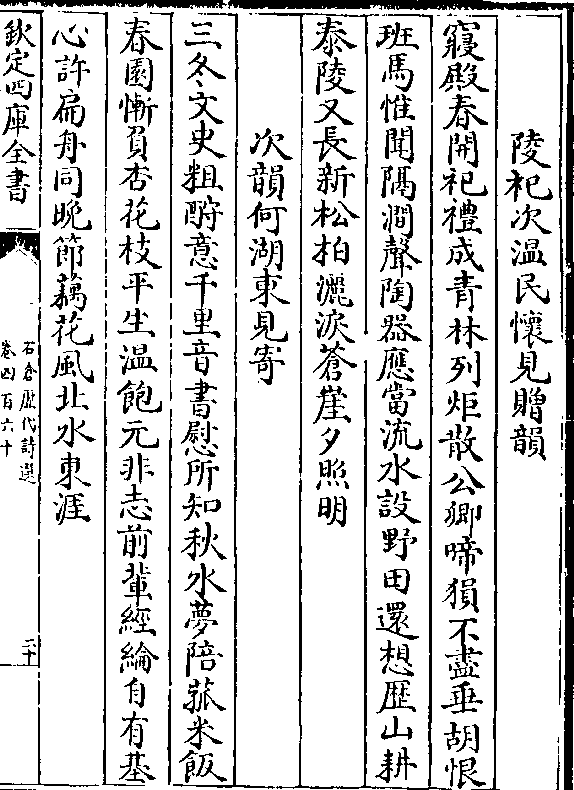 陵祀次温民懷見贈韻
寢殿春開祀禮成青林列炬散公卿啼猿不盡垂胡恨
班馬惟聞隔澗聲陶器應當流水設野田還想歴山耕
泰陵又長新松柏灑淚蒼崖夕照明
次韻何湖東見寄
三冬文史粗酧意千里音書慰所知秋水夢陪菰米飯
春園慚負杏花枝平生温飽元非志前輩經綸自有基
心許扁舟同晚節藕花風北水東涯
欽定四庫全書
石倉歴代詩選
卷四百六十
二十